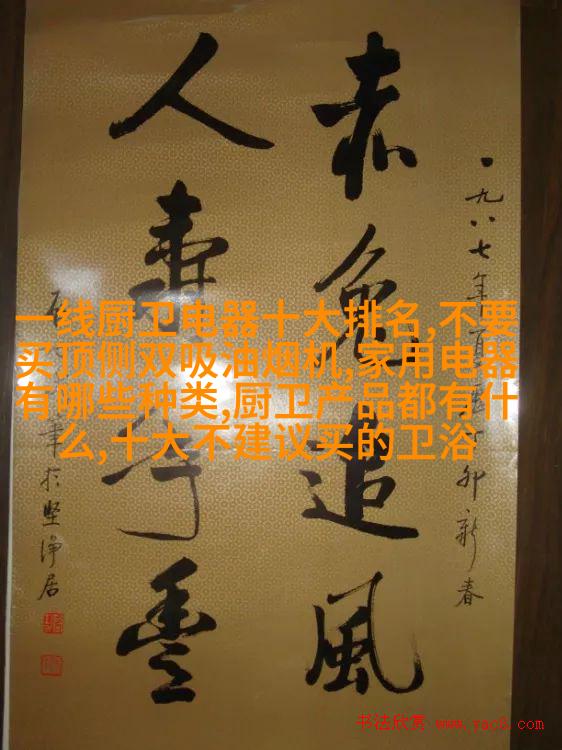 一线厨卫电器十大排名,不要
买顶侧双吸油烟机,家用电器
有哪些种类,厨卫产品都有什
么,十大不建议买的卫浴
一九八七年
卯新春
赤兔追風
人壽年豐
於堅浄居
书法欣赏 www.yac8.com